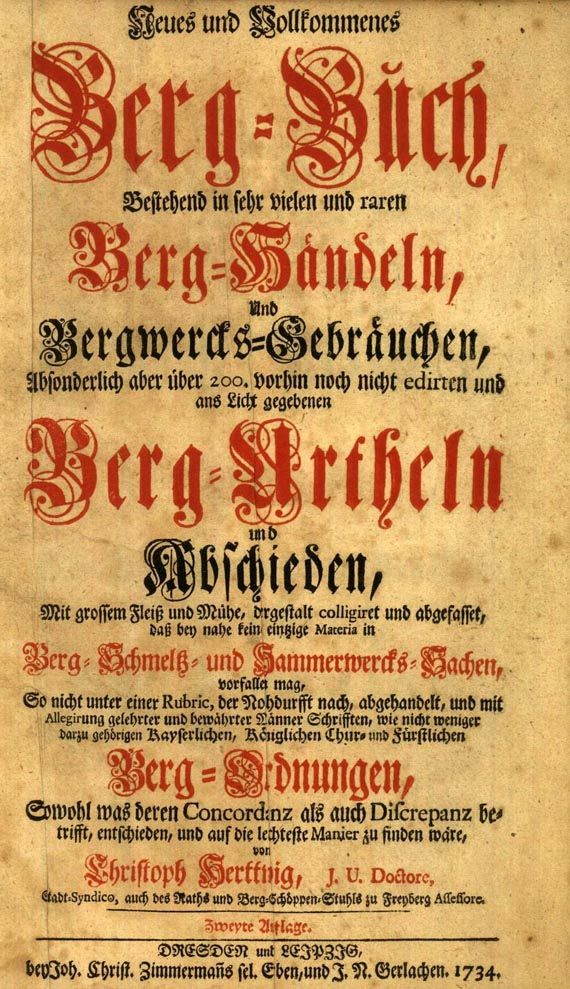 Neues und Vollkommenes
Berg-Buch,
Bestehend in sehr vielen und raren
Berg-Händeln,
Und
Bergwercks-Gebräuchen,
Absonderlich aber über 200. vorhin noch nicht edirten und
ans Licht gegebenen
Berg-Urtheln
und
Abschieden,
Mit grossem Fleiß und Mühe, dergestalt colligiret und abgefasset,
daß bey nahe kein eintzige Materia in
Berg- Schmeltz- und Hammerwercks-Sachen,
vorfallen mag,
So nicht unter einer Rubric, der Nohdurfft nach, abgehandelt, und mit
Allegirung gelehrter und bewährter Männer Schrifften, wie nicht weniger
darzu gehörigen Kayserlichen, Königlichen Chur- und Fürstlichen
Berg-Ordnungen,
Sowohl was deren Concordanz als auch Discrepanz be-
trifft, entschieden, und auf die lechteste Manier zu finden wäre,
von
Christoph Herttwig, J. U. Doctore,
Stadt-Syndico, auch des Raths und Berg-Schöppen-Stuhls zu Freyberg Assessore.
Zweyte Auflage.
DRESDEN und LEIPZIG,
bey Joh. Christ. Zimmermañs sel. Erben, und J. N. Gerlachen. 1734.